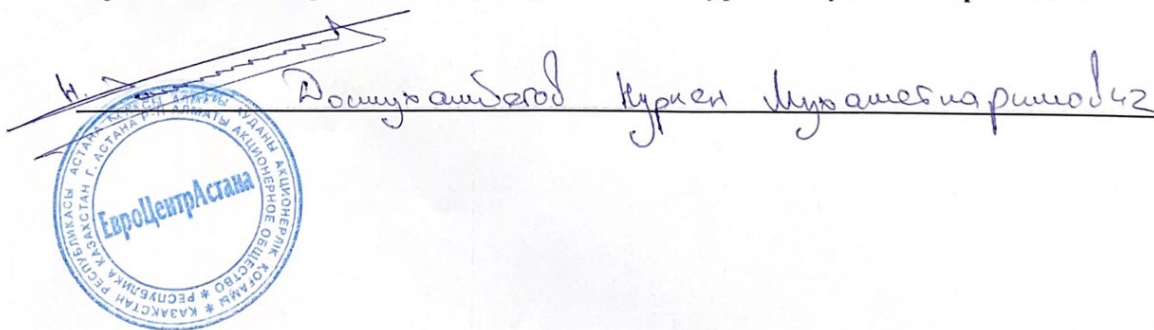 Досмухамбетов Нуркен Мухаметкаримович
КАЗАКСТАН РЕСПУБЛИКАСЫ АСТАНА ҚАЛАСЫ АЛМАТЫ АУДАНЫ АКЦИОНЕРЛІК ҚОҒАМЫ
РЕСПУБЛИКА КАЗАХСТАН Г. АСТАНА Р-Н АЛМАТЫ АКЦИОНЕРНОЕ ОБЩЕСТВО
ЕвроЦентрАстана